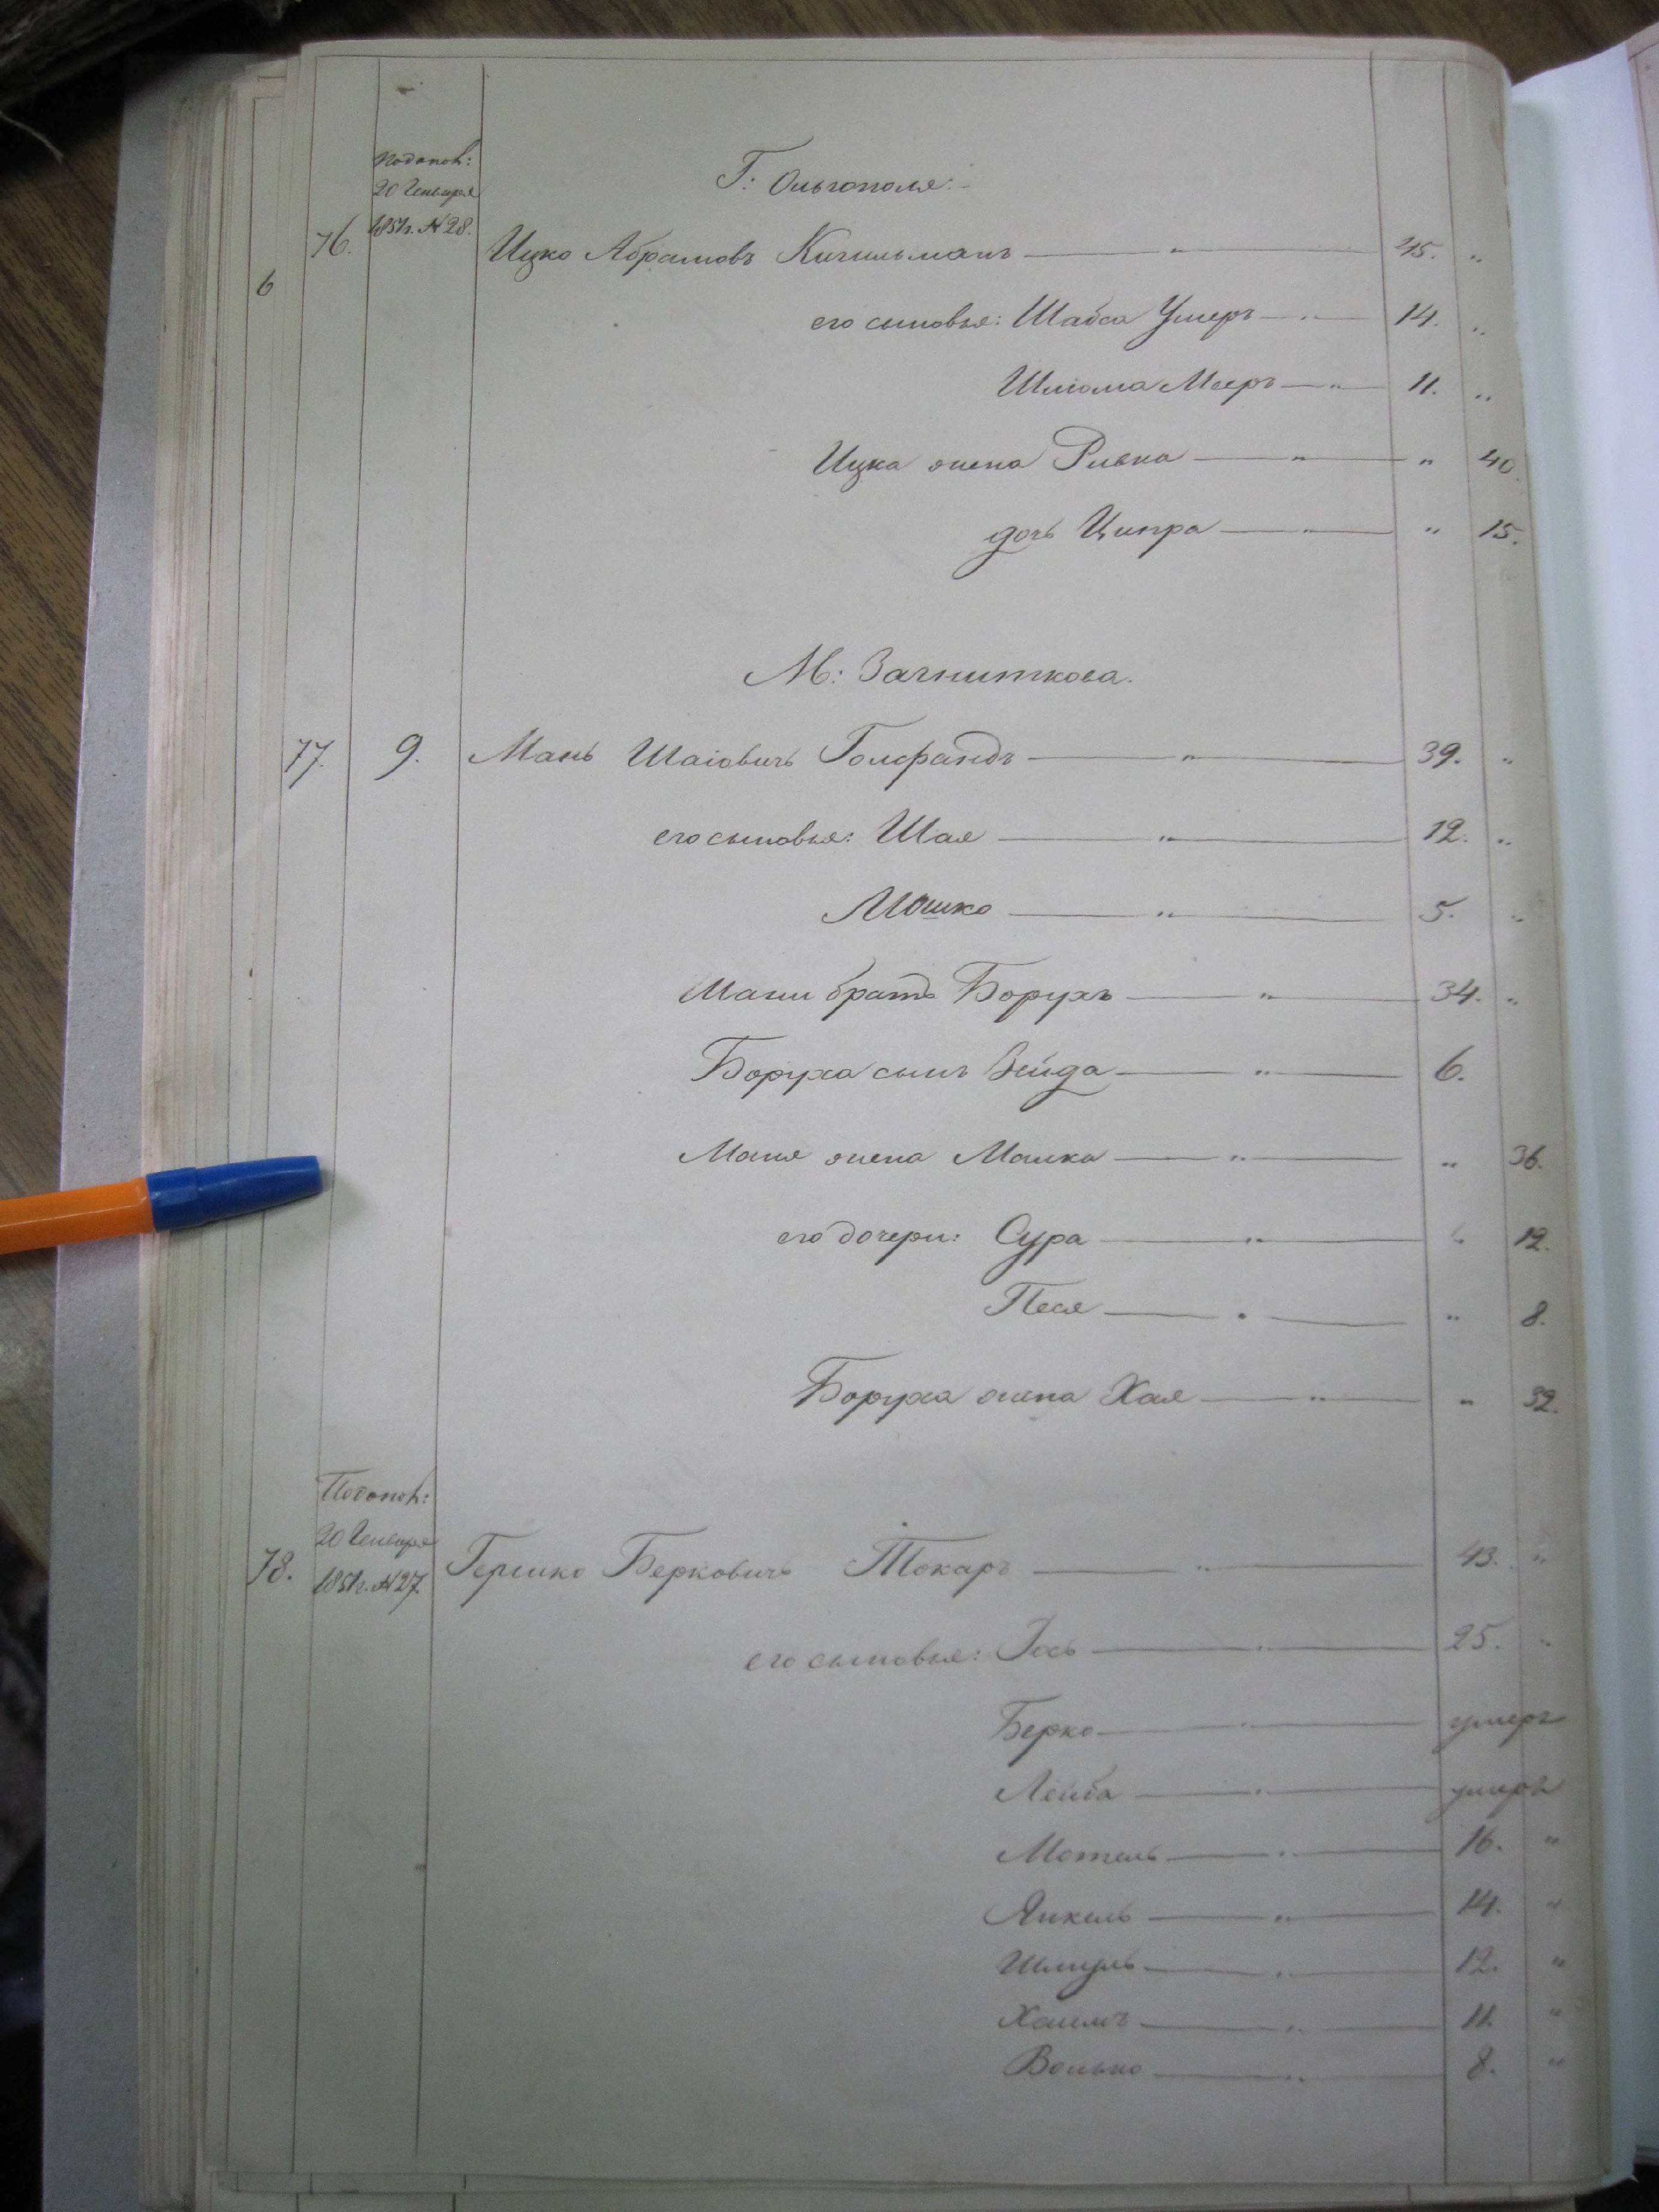 Г: Ольгополя:
По допол:
20 Генваря
1851г. №28.
76. Ицко Абрамовъ Кигильманъ — " — 45. "
6
его сыновья: Шабса Умеръ — " — 14. "
Шлиома Мееръ — " — 11. "
Ицка жена Ривка — " — " 40.
дочь Ципра — " — " 15.
М: Загниткова.
77. 9. Мань Шаiовичъ Гольфандъ — " — 39. "
его сыновья: Шая — " — 12. "
Мошко — " — 5. "
Мани братъ Борухъ — " — 34. "
Боруха сынъ Зейда — " — 6.
Маня жена Малка — " — " 36.
его дочери: Сура — " — " 12.
Песя — " — " 8.
Боруха жена Хая — " — " 32.
По допол:
20 Генваря
1851г. №27.
78. Гершко Берковичъ Токаръ — " — 43. "
его сыновья: Iось — " — 25. "
Берко — " — умеръ
Лейба — " — умеръ
Мотель — " — 16. "
Янкель — " — 14. "
Шмуль — " — 12. "
Хаимъ — " — 11. "
Волько — " — 8. "